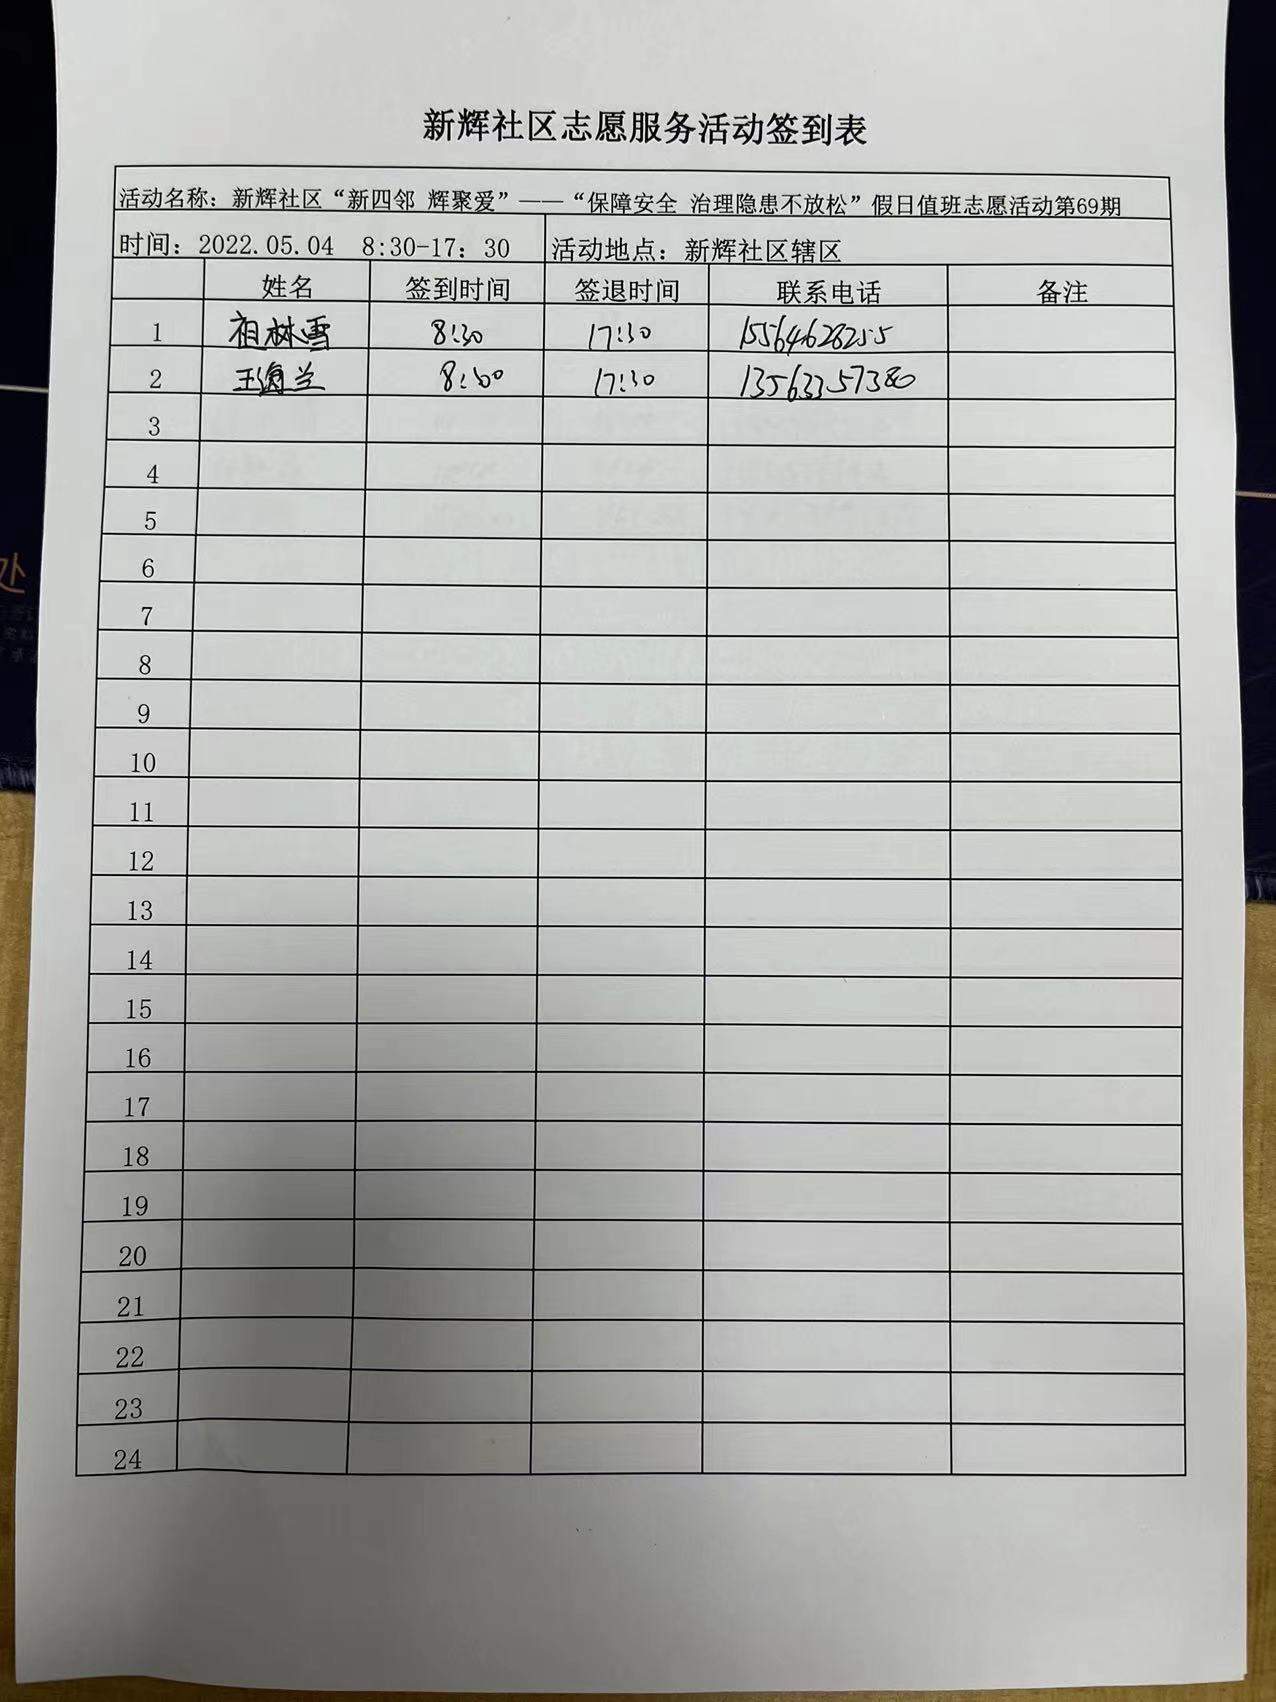 新辉社区志愿服务活动签到表
活动名称：新辉社区“新四邻 辉聚爱”——“保障安全 治理隐患不放松”假日值班志愿活动第69期
时间：2022.05.04 8:30-17：30 活动地点：新辉社区辖区
姓名 签到时间 签退时间 联系电话 备注
1 祖林雪 8:30 17:30 15564628255
2 王海兰 8:30 17:30 13563357380
3
4
5
6
7
8
9
10
11
12
13
14
15
16
17
18
19
20
21
22
23
24
处